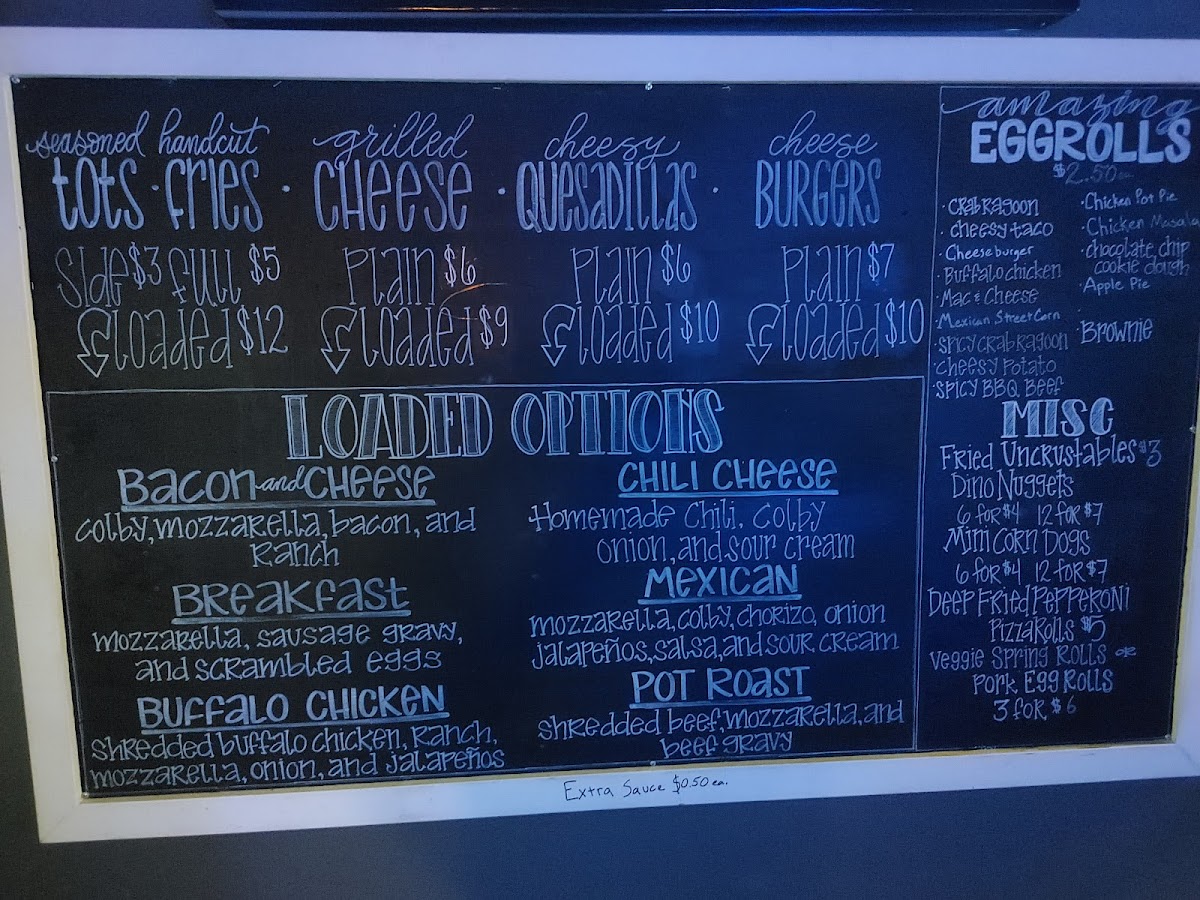 seasoned handcut
tots · fries ·
Side $3 full $5
loaded $12
grilled
CHEESE ·
Plain $6
loaded $9
cheesy
QUESADILLAS ·
Plain $6
loaded $10
cheese
BURGERS
Plain $7
loaded $10
LOADED OPTIONS
Bacon and CHEESE
colby, mozzarella, bacon, and
Ranch
Breakfast
mozzarella, sausage gravy,
and scrambled eggs
Buffalo CHICKEN
shredded buffalo chicken, Ranch,
mozzarella, onion, and jalapeños
CHILI CHEESE
Homemade chili, colby
onion, and sour cream
MEXICAN
mozzarella, colby, chorizo, onion
jalapeños, salsa, and sour cream
POT ROAST
shredded beef, mozzarella, and
beef gravy
amazing
EGGROLLS
$2.50 ea.
· Crab Ragoon
· cheesy taco
· Cheeseburger
· Buffalo chicken
· Mac & Cheese
· Mexican Street Corn
· Spicy Crab Ragoon
· Cheesy Potato
· Spicy BBQ Beef
· Chicken Pot Pie
· Chicken Masala
· chocolate chip
cookie dough
· Apple Pie
· Brownie
MISC
Fried Uncrustables $3
Dino Nuggets
6 for $4 12 for $7
Mini Corn Dogs
6 for $4 12 for $7
Deep Fried Pepperoni
Pizza Rolls $5
Veggie Spring Rolls or
Pork Egg Rolls
3 for $6
Extra Sauce $0.50 ea.